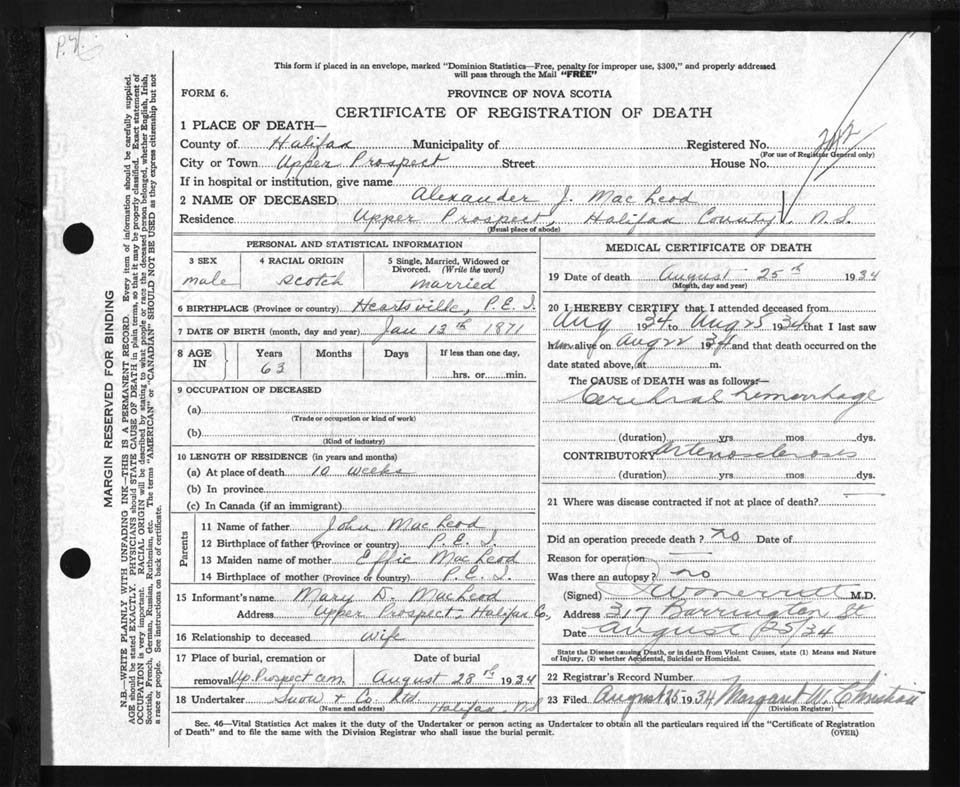 This form if placed in an envelope, marked "Dominion Statistics—Free, penalty for improper use, $300," and properly addressed
will pass through the Mail "FREE"
FORM 6.
PROVINCE OF NOVA SCOTIA
CERTIFICATE OF REGISTRATION OF DEATH
1 PLACE OF DEATH—
County of Halifax Municipality of Registered No.
(For use of Registrar General only)
City or Town Upper Prospect Street House No.
If in hospital or institution, give name
2 NAME OF DECEASED Alexander J. MacLeod
Residence Upper Prospect, Halifax County, N.S.
(Usual place of abode)
PERSONAL AND STATISTICAL INFORMATION
3 SEX
male
4 RACIAL ORIGIN
Scotch
5 Single, Married, Widowed or
Divorced. (Write the word)
married
6 BIRTHPLACE (Province or country) Heartsville, P.E.I.
7 DATE OF BIRTH (month, day and year) Jan 13th 1871
8 AGE
IN
Years
63
Months
Days
If less than one day,
hrs. or min.
9 OCCUPATION OF DECEASED
(a)
(Trade or occupation or kind of work)
(b)
(Kind of industry)
10 LENGTH OF RESIDENCE (in years and months)
(a) At place of death 10 weeks
(b) In province
(c) In Canada (if an immigrant)
Parents
11 Name of father John MacLeod
12 Birthplace of father (Province or country) P.E.I.
13 Maiden name of mother Effie MacLeod
14 Birthplace of mother (Province or country) P.E.I.
15 Informant's name Mary D. MacLeod
Address Upper Prospect, Halifax Co,
16 Relationship to deceased wife
17 Place of burial, cremation or
removal Up. Prospect cem.
Date of burial
August 28th 1934
18 Undertaker Snow & Co. Ltd.
(Name and address) Halifax, N.S
MEDICAL CERTIFICATE OF DEATH
19 Date of death August 25th 1934
(Month, day and year)
20 I HEREBY CERTIFY that I attended deceased from
Aug 1934 to Aug 25 1934 that I last saw
him alive on Aug 22 1934 and that death occurred on the
date stated above, at m.
The CAUSE of DEATH was as follows:—
Cerebral hemorrhage
(duration) yrs mos dys.
CONTRIBUTORY Arteriosclerosis
(duration) yrs. mos. dys.
21 Where was disease contracted if not at place of death?
Did an operation precede death? no Date of
Reason for operation
Was there an autopsy? no
(Signed) M.D.
Address 317 Barrington St
Date August 25/34
State the Disease causing Death, or in death from Violent Causes, state (1) Means and Nature
of Injury, (2) whether Accidental, Suicidal or Homicidal.
22 Registrar's Record Number
23 Filed August 25 1934 Margaret W. Christian
(Division Registrar)
Sec. 46—Vital Statistics Act makes it the duty of the Undertaker or person acting as Undertaker to obtain all the particulars required in the "Certificate of Registration
of Death" and to file the same with the Division Registrar who shall issue the burial permit.
(OVER)
MARGIN RESERVED FOR BINDING
N.B.—WRITE PLAINLY WITH UNFADING INK—THIS IS A PERMANENT RECORD. Every item of information should be carefully supplied.
AGE should be stated EXACTLY. PHYSICIANS should STATE CAUSE OF DEATH in plain terms, so that it may be properly classified. Exact statement of
OCCUPATION is very important. RACIAL ORIGIN will be described by stating to what people or race the deceased person belonged, whether English, Irish,
Scottish, French, German, Russian, Ruthenian, etc. The terms "AMERICAN" or "CANADIAN" SHOULD NOT BE USED as they express citizenship but not
a race or people. See instructions on back of certificate.